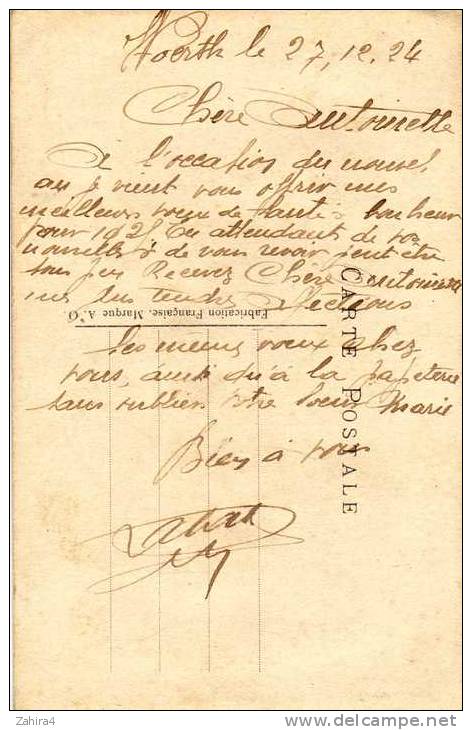 Woerth le 27,12.24
Chère Antoinette
A l'occasion du nouvel
an je vient vous offrir mes
meilleurs voeux de santé & bonheur
pour 1925 En attendants de vos
nouvelles & de vous revoir peut etre
sous peu Recevez Chère Antoinette
mes plus tendres Affections
Fabrication Française. Marque A. O.
CARTE POSTALE
Les memes voeux chez
vous, ainsi qu'à la papeterie
sans oublier votre soeur Marie
Bien à vous
Zahira4
www.delcampe.net